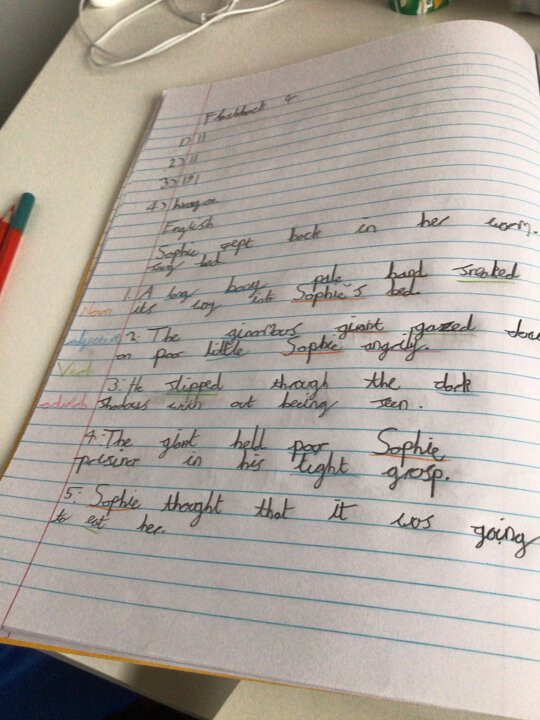 Flashback 4
1) 11
2) 11
3) 191
4) hexagon
English
Sophie rept back in her worm.
bed
1. A long bony pale hand snaked
Noun its way into Sophie's bed.
adjective 2. The ginormous giant gazed dow
on poor little Sophie angrily.
Verb
3. He slipped through the dark
adverb shadows with out beeing seen.
4. The giant hell poor Sophie
prisiner in his tight grasp.
5. Sophie thought that it was going
to eat her.